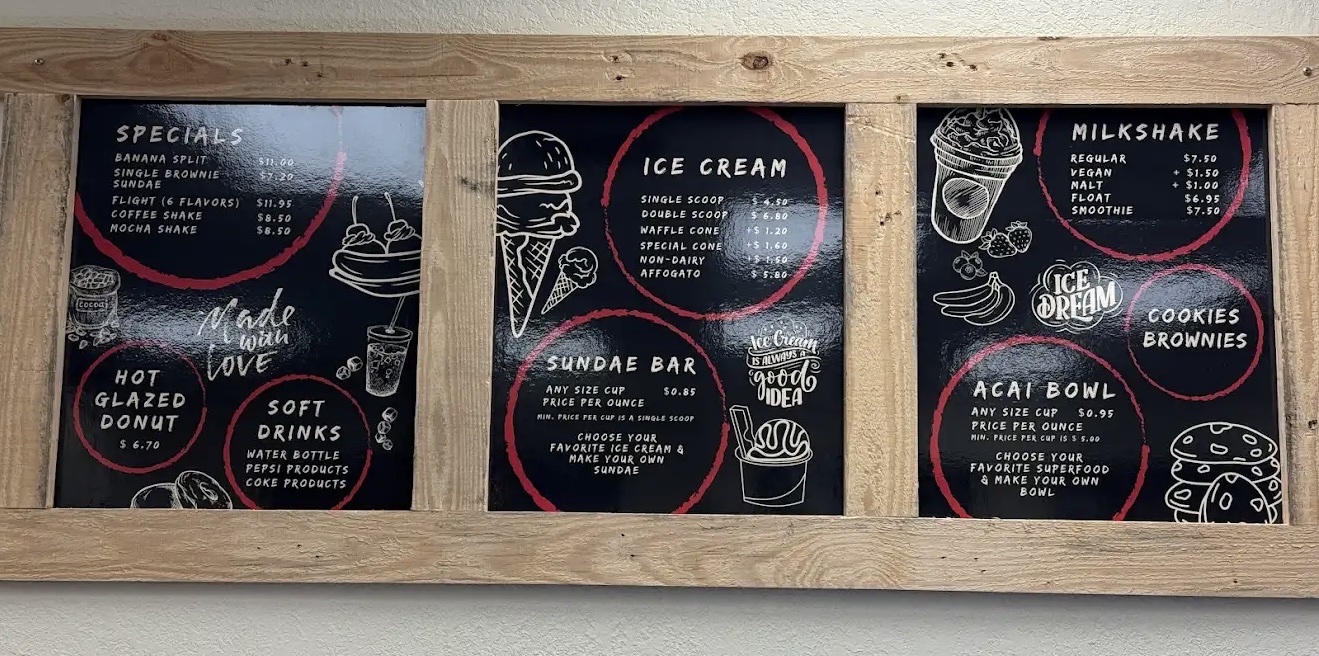 SPECIALS
BANANA SPLIT $11.00
SINGLE BROWNIE $7.20
SUNDAE
FLIGHT (6 FLAVORS) $11.95
COFFEE SHAKE $8.50
MOCHA SHAKE $8.50
COCOA
Made
with
LOVE
HOT
GLAZED
DONUT
$ 6.70
SOFT
DRINKS
WATER BOTTLE
PEPSI PRODUCTS
COKE PRODUCTS
ICE CREAM
SINGLE SCOOP $ 4.50
DOUBLE SCOOP $ 6.80
WAFFLE CONE +$ 1.20
SPECIAL CONE +$ 1.60
NON-DAIRY +$ 1.50
AFFOGATO $ 5.80
SUNDAE BAR
ANY SIZE CUP $0.85
PRICE PER OUNCE
MIN. PRICE PER CUP IS A SINGLE SCOOP
CHOOSE YOUR
FAVORITE ICE CREAM &
MAKE YOUR OWN
SUNDAE
Ice Cream
IS ALWAYS A
good
IDEA
MILKSHAKE
REGULAR $7.50
VEGAN + $1.50
MALT + $1.00
FLOAT $6.95
SMOOTHIE $7.50
ICE
DREAM
COOKIES
BROWNIES
ACAI BOWL
ANY SIZE CUP $0.95
PRICE PER OUNCE
MIN. PRICE PER CUP IS $ 5.00
CHOOSE YOUR
FAVORITE SUPERFOOD
& MAKE YOUR OWN
BOWL